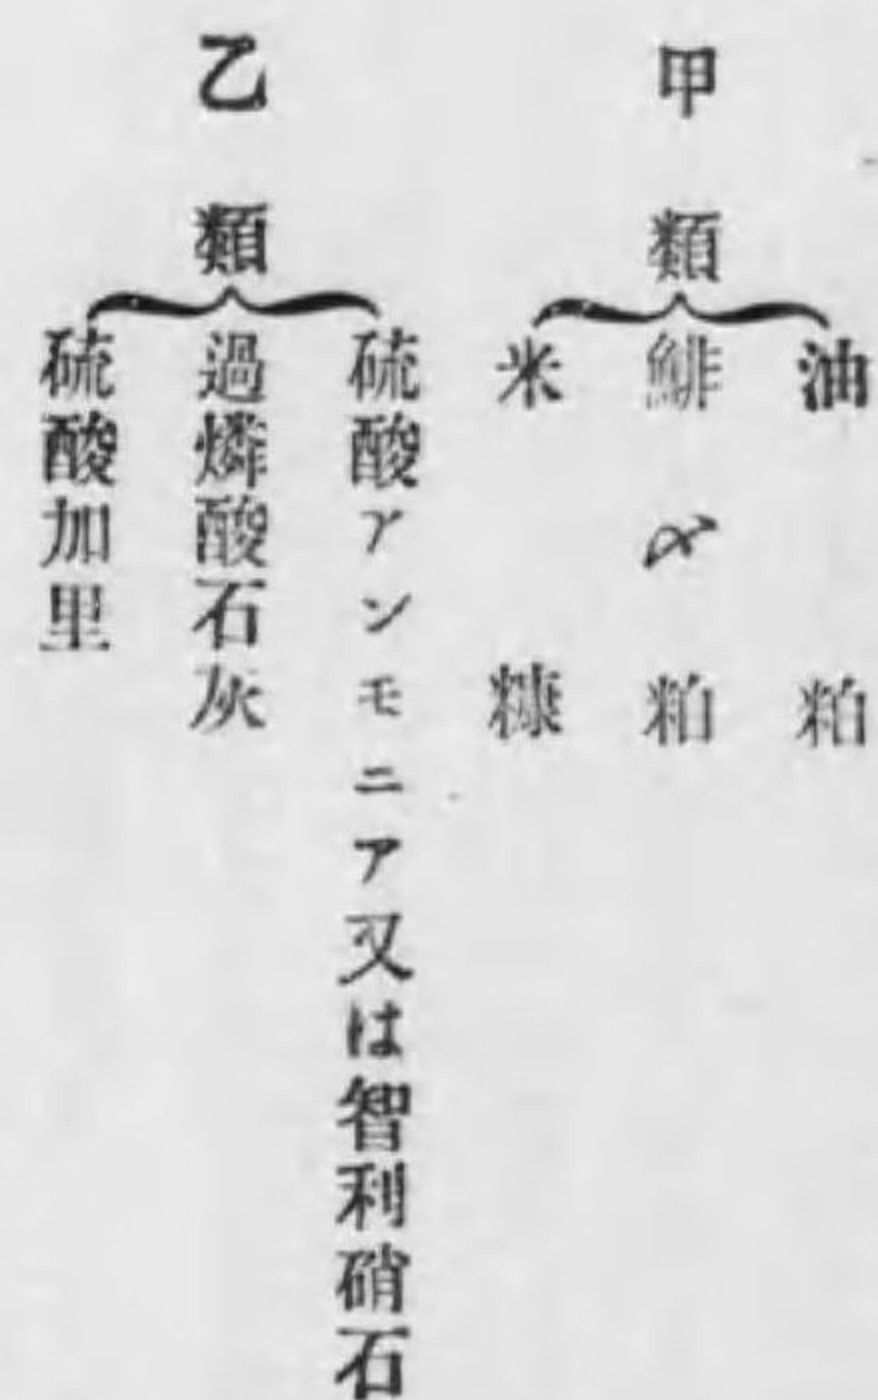 甲類
油粕
鯡〆粕
米糠
乙類
硫酸アンモニア又は智利硝石
過燐酸石灰
硫酸加里